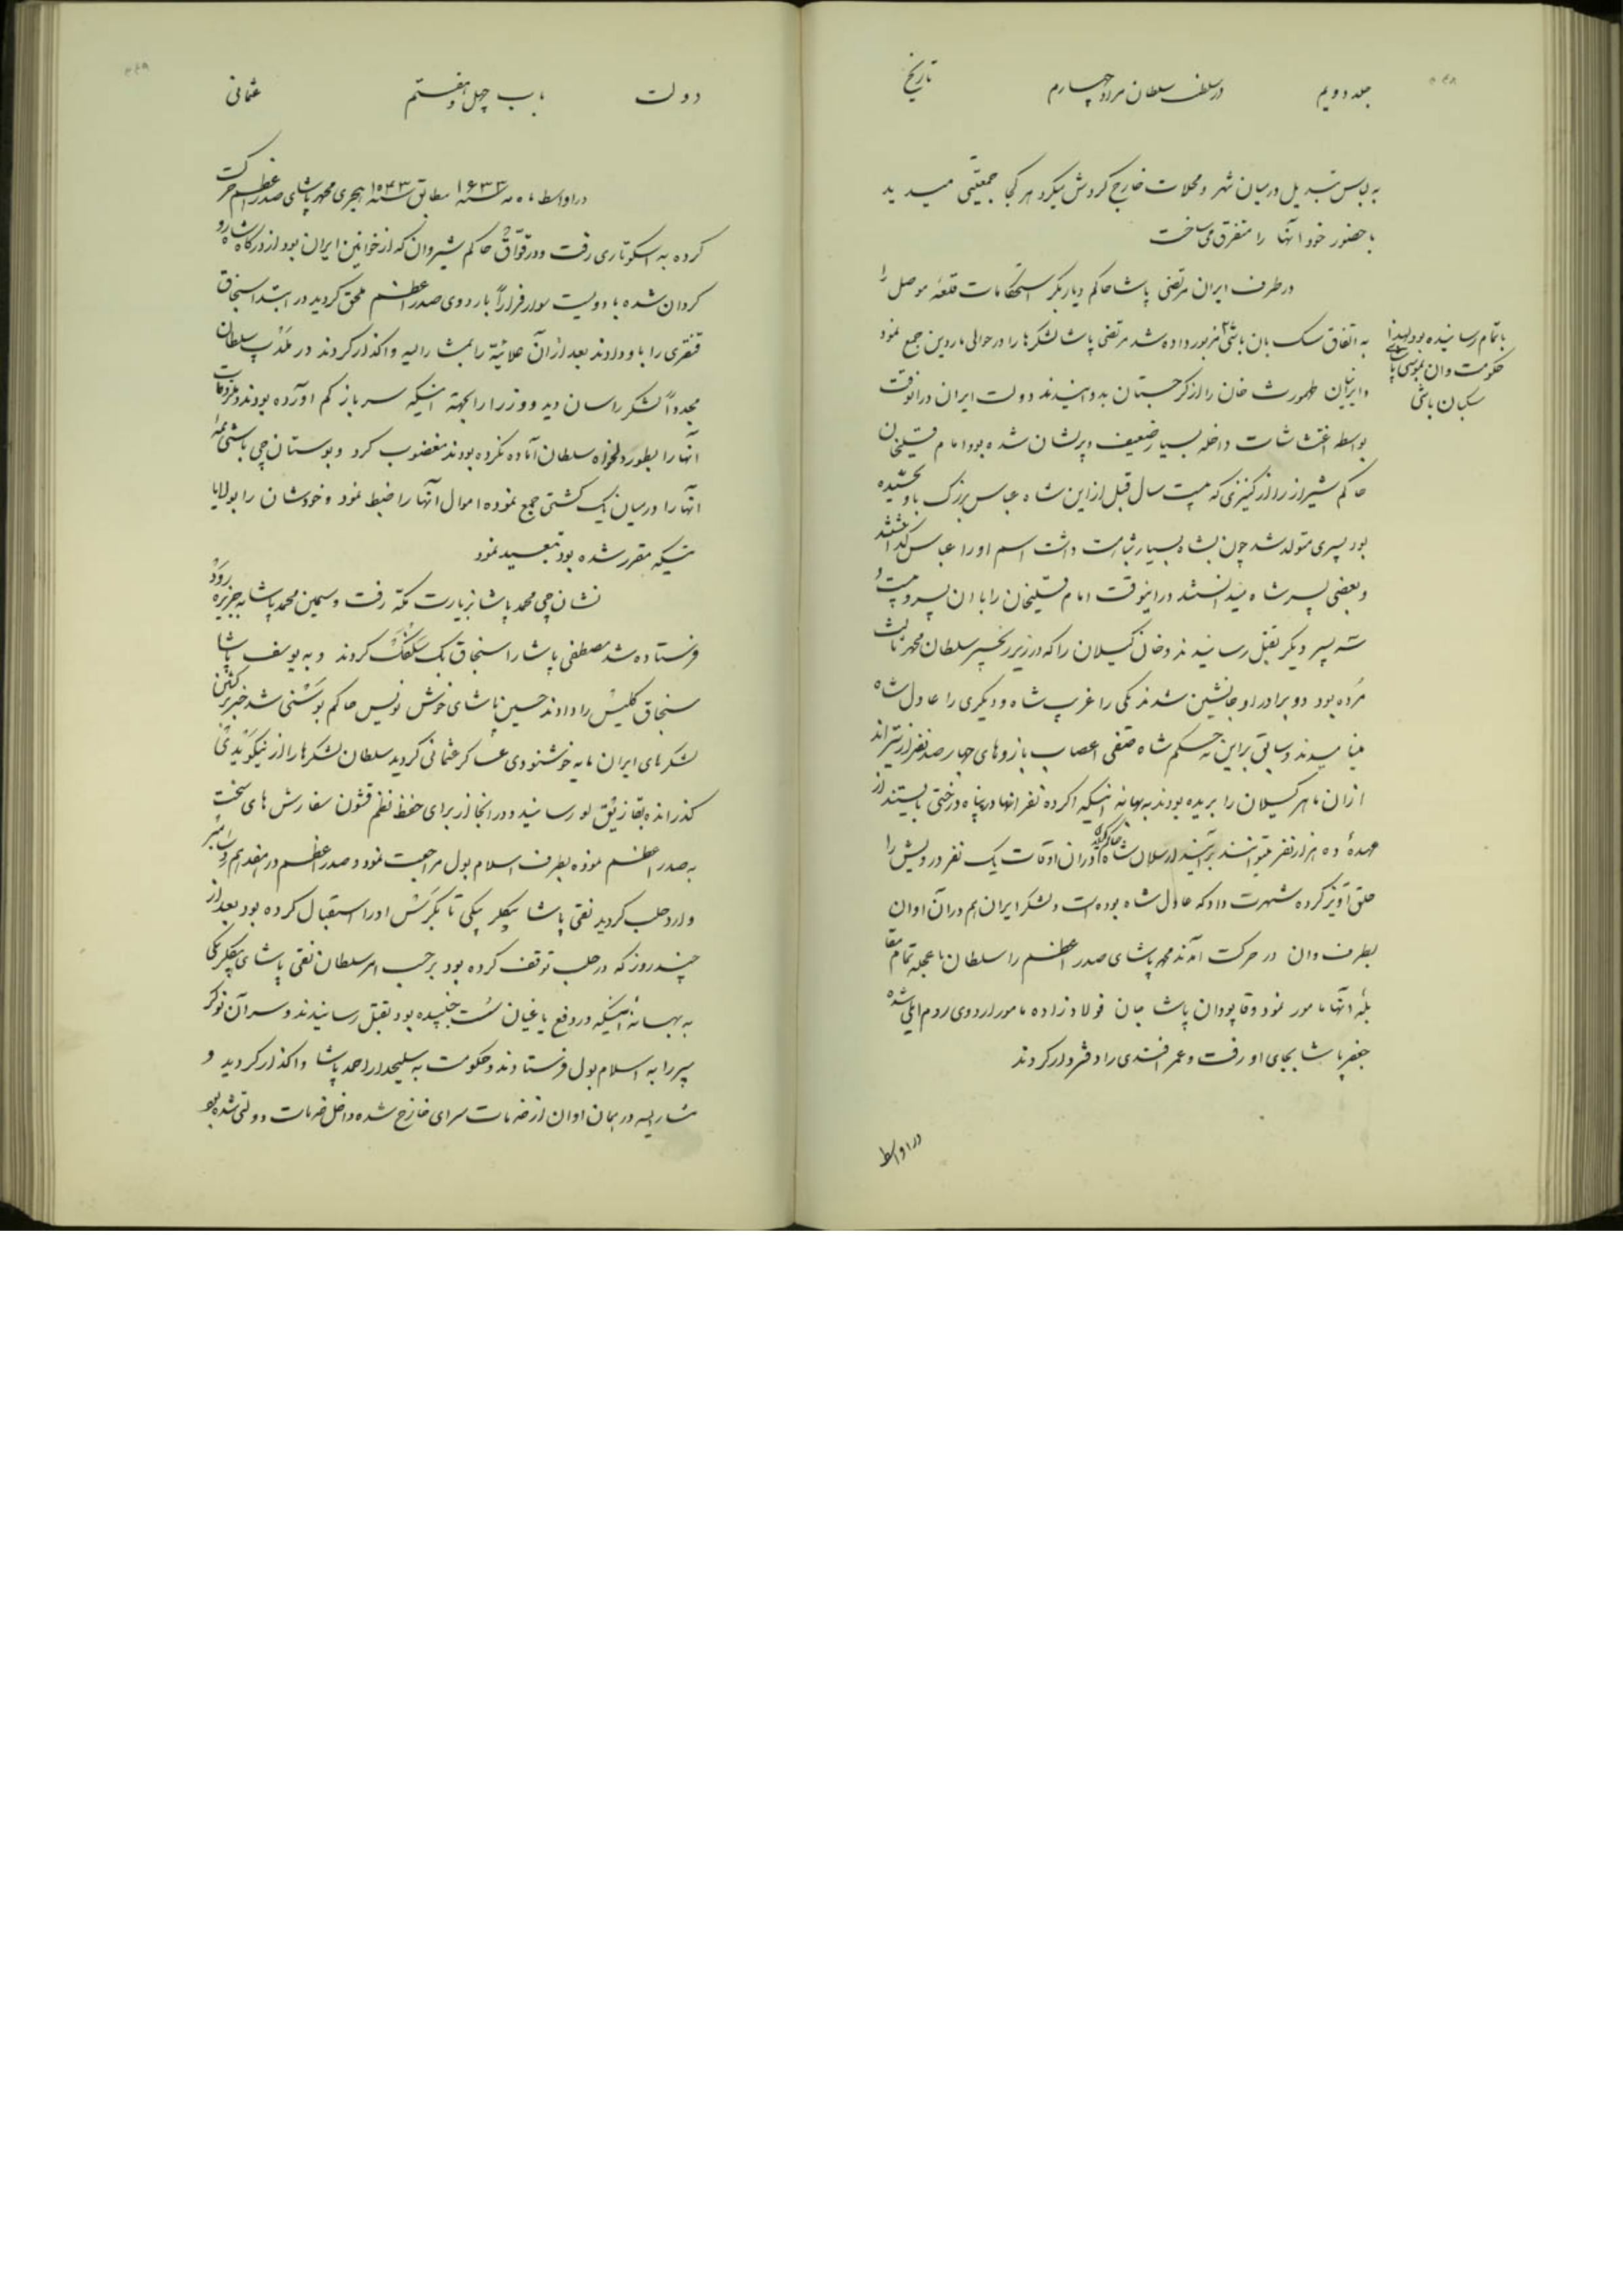 جلد دویم در سلطنت سلطان مراد چهارم تاریخ
به لباس تبدیل درمیان شهر و محلات خارج گردش میکرد هر کجا جمعیتی میدید
با حضور خود آنها را متفرق می ساخت
در طرف ایران مرتضی پاشا حاکم دیاربکر استحکامات قلعه موصل را
باتمام رسانیده بود لهذا
حکومت وان بموسی پاشا
سکبان باشی
به اتفاق سکبان باشی مزبور داده شد مرتضی پاشا لشکرها را در حوالی ماردین جمع نمود
و ایرانیان طهمورث خان را از گرجستان بدوانیدند دولت ایران در آنوقت
بواسطه اغتشاشات داخله بسیار ضعیف و پریشان شده بود امام قلیخان
حاکم شیراز را از کنیزی که بیست سال قبل از این شاه عباس بزرگ باو بخشیده
بود پسری متولد شد چون بشاه بسیار شباهت داشت اسم او را عباس گذاشتند
و بعضی پسر شاه میدانستند در اینوقت امام قلیخان را با آن پسر و بیست و
سه پسر دیگر بقتل رسانیدند و خان گیلان را که در زیر زنجیر سلطان محمد ثالث
مرده بود دو برادر او جانشین شدند یکی را غریب شاه و دیگری را عادل شاه
مینامیدند و سابق بر این به حکم شاه صفی اعصاب بازوهای چهار صد نفر از تیراند
ازان ماهر گیلان را بریده بودند به بهانه اینکه اگر ده نفر آنها در پناه درختی بایستند از
عهدهٔ ده هزار نفر میتوانند برآیند ارسلان شاه در آن اوقات یک نفر درویش را
حلق آویز کرده شهرت داد که عادل شاه بوده است و لشکر ایران هم در آن اوان
بطرف وان در حرکت آمدند محمد پاشای صدر اعظم را سلطان با عجله تمام بمقا
بلهٔ آنها مامور نمود و قاپودان پاشا جان فولاد زاده مامور اردوی روم ایلی شده
جعفر پاشا بجای او رفت و عمر افندی را دفتردار کردند
در اواسط
دولت باب چهل و هفتم عثمانی
در اواسط ماه مه سنه ۱۶۳۳ مطابق سنه ۱۰۴۳ هجری محمد پاشای صدر اعظم حرکت
کرده به اسکوتاری رفت و در قواق حاکم شیروان که از خوانین ایران بود از درگاه شاه رو
گردان شده با دویست سوار فراراً باردوی صدر اعظم ملحق گردید در ابتدا سنجاق
قنقری را باو دادند بعد از آن علائیه را بمشارالیه واگذار کردند در ملدپه سلطان
مجدداً لشکر را سان دید و وزرا را بجهة اینکه سرباز کم آورده بودند و ملزومات
آنها را بطور دلخواه سلطان آماده نکرده بودند مغضوب کرد و بوستانچی باشی همهٔ
آنها را درمیان یک کشتی جمع نموده اموال آنها را ضبط نمود و خودشان را بولایا
تیکه مقرر شده بود تبعید نمود
نشانچی محمد پاشا بزیارت مکه رفت و سیمین محمد پاشا به جزیره رود
فرستاده شد مصطفی پاشا را سنجاق بک سلفک کردند و به یوسف پاشا
سنجاق کلیس را دادند حسین پاشای خوش نویس حاکم بوسنی شد خبر برگشتن
لشکرهای ایران مایه خوشنودی عساکر عثمانی گردید سلطان لشکرها را از نیکومدی
گذرانده بقازیق لو رسانید و در آنجا از برای حفظ نظم قشون سفارش های سخت
به صدر اعظم نموده بطرف اسلامبول مراجعت نمود و صدر اعظم در هفدهم دسامبر
وارد حلب گردید نقی پاشا بیگلر بیگی تا بکرس او را استقبال کرده بود بعد از
چند روز که در حلب توقف کرده بود بر حسب امر سلطان نقی پاشای بیگلر بیگی
به بهانهٔ اینکه در دفع یاغیان سست جنبیده بود بقتل رسانیدند و سر آن نوکر
پیر را به اسلامبول فرستادند و حکومت به سلیحدار احمد پاشا واگذار گردید و
مشارالیه در همان اوان از خدمات سرای خارج شده داخل خدمات دولتی شده بود